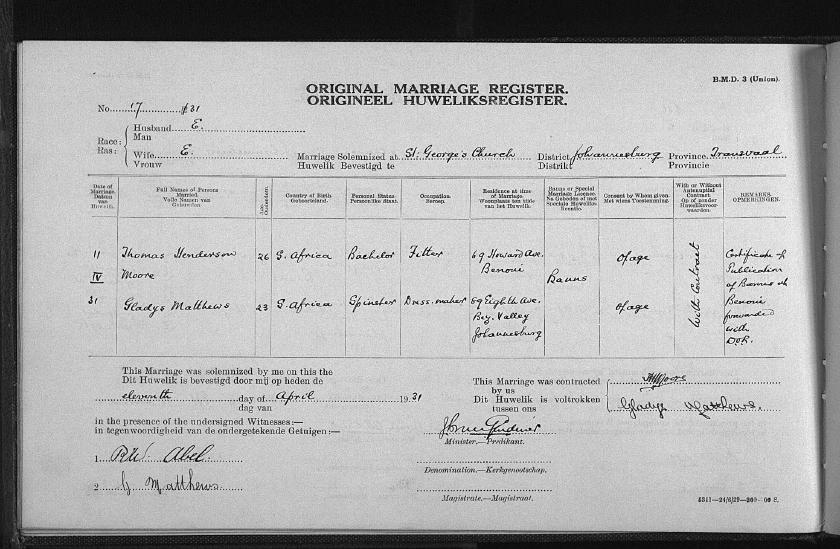 B.M.D. 3 (Union).
ORIGINAL MARRIAGE REGISTER.
ORIGINEEL HUWELIKSREGISTER.
No. 17 /31
Race: Ras:
Husband E.
Man
Wife E.
Vrouw
Marriage Solemnized at St. George's Church District Johannesburg Province Transvaal
Huwelik Bevestigd te Distrikt Provincie
Date of Marriage. Datum van Huwelik.
Full Names of Persons Married. Volle Namen van Gehuwden.
Age.
Country of Birth Geboorteland.
Personal Status. Persoonlike staat.
Occupation. Beroep.
Residence at time of Marriage. Woonplaats ten tijde van het Huwelik.
Banns or Special Marriage Licence. Na Geboden of met Speciale Huweliks-licentie.
Consent by Whom given. Met wiens Toestemming.
With or Without Antenuptial Contract. Op of zonder Huweliksvoorwaarden.
REMARKS. OPMERKINGEN.
11 IV 31
Thomas Henderson Moore 26 S. Africa Bachelor Fitter 69 Howard Ave. Benoni Banns Of age With Contract
Gladys Matthews 23 S. Africa Spinster Dress-maker 89 Eighth Ave. Bez. Valley Johannesburg Of age
Certificate of Publication of Banns at Benoni forwarded with D.O.R.
This Marriage was solemnized by me on this the
Dit Huwelik is bevestigd door mij op heden de
eleventh day of April 1931
dag van
in the presence of the undersigned Witnesses:—
in tegenwoordigheid van de ondergetekende Getuigen:—
1 R.W. Abel
2 G Matthews
This Marriage was contracted by us
Dit Huwelik is voltrokken tussen ons
THMoore
Gladys Matthews.
Minister.—Predikant.
Denomination.—Kerkgenootschap.
Magistrate.—Magistraat.